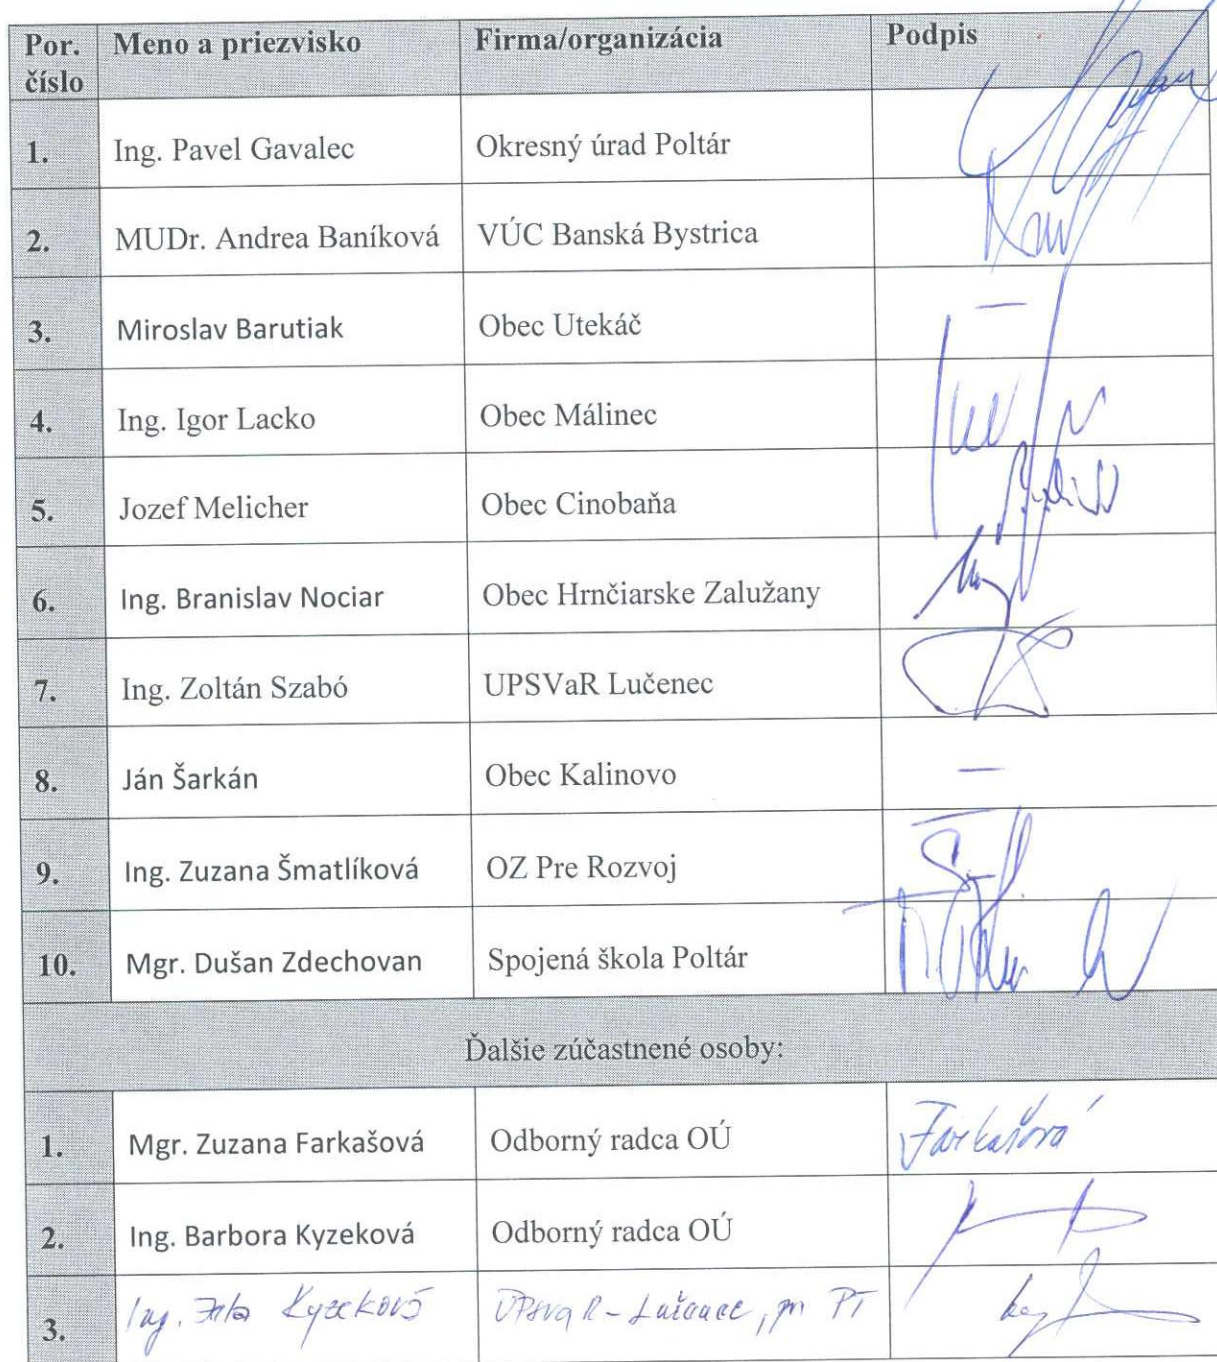 Por. číslo Meno a priezvisko Firma/organizácia Podpis
1. Ing. Pavel Gavalec Okresný úrad Poltár
2. MUDr. Andrea Baníková VÚC Banská Bystrica
3. Miroslav Barutiak Obec Utekáč —
4. Ing. Igor Lacko Obec Málinec
5. Jozef Melicher Obec Cinobaňa
6. Ing. Branislav Nociar Obec Hrnčiarske Zalužany
7. Ing. Zoltán Szabó UPSVaR Lučenec
8. Ján Šarkán Obec Kalinovo —
9. Ing. Zuzana Šmatlíková OZ Pre Rozvoj
10. Mgr. Dušan Zdechovan Spojená škola Poltár
Ďalšie zúčastnené osoby:
1. Mgr. Zuzana Farkašová Odborný radca OÚ Farkašová
2. Ing. Barbora Kyzeková Odborný radca OÚ
3. Ing. Kyzeková UPSVaR - Lučenec, PT